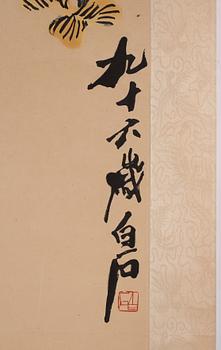 九十六歲白石